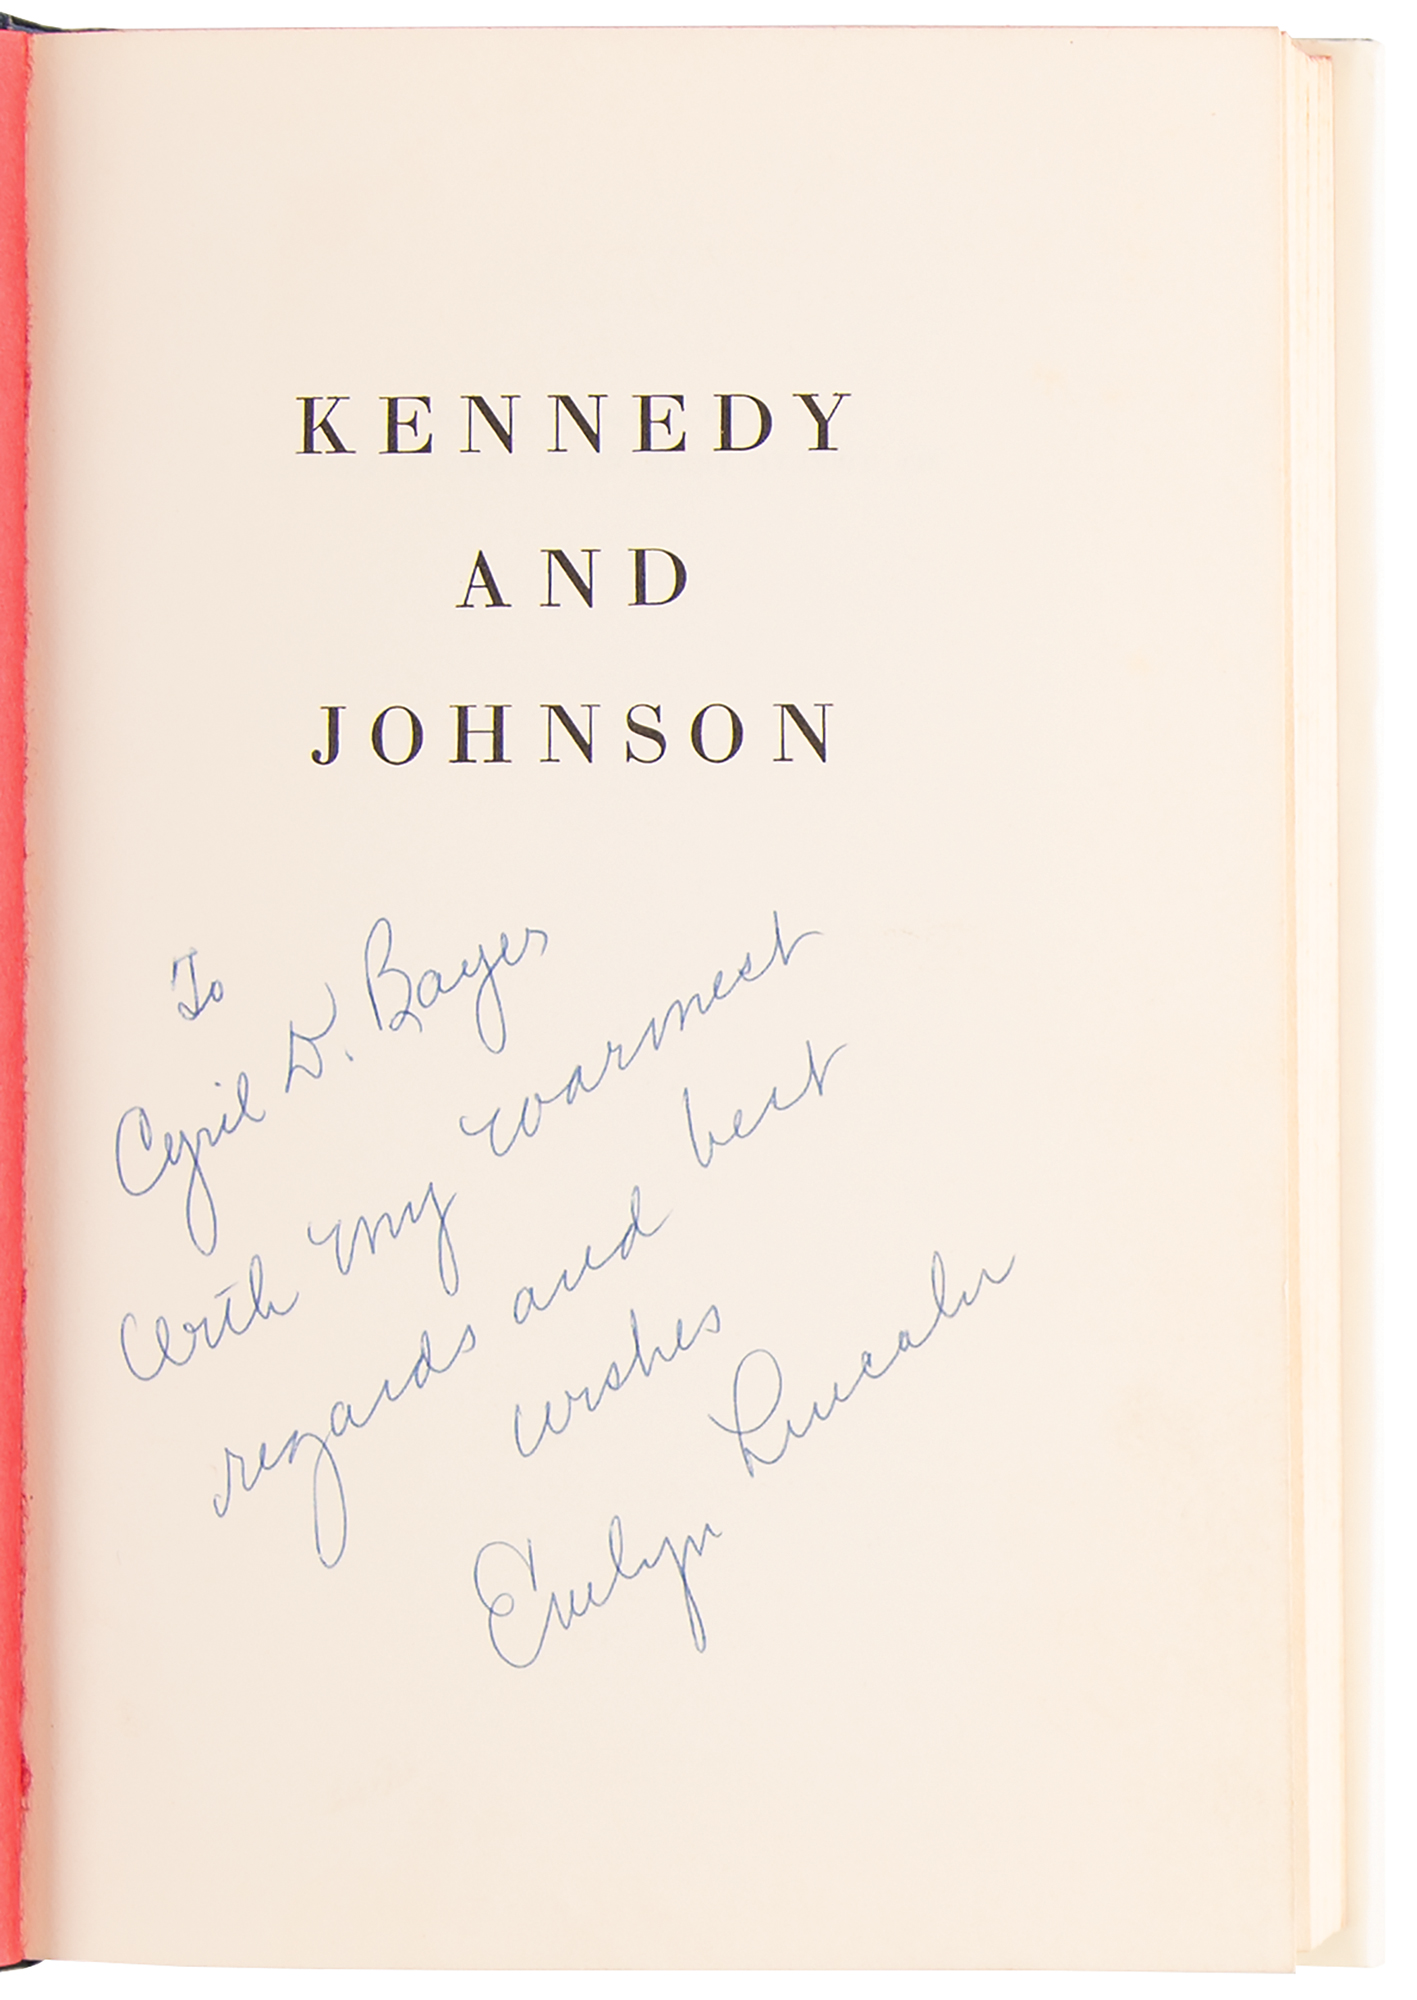 KENNEDY
AND
JOHNSON
To
Cyril D. Bayer
With my warmest
regards and best
wishes
Evelyn Lincoln